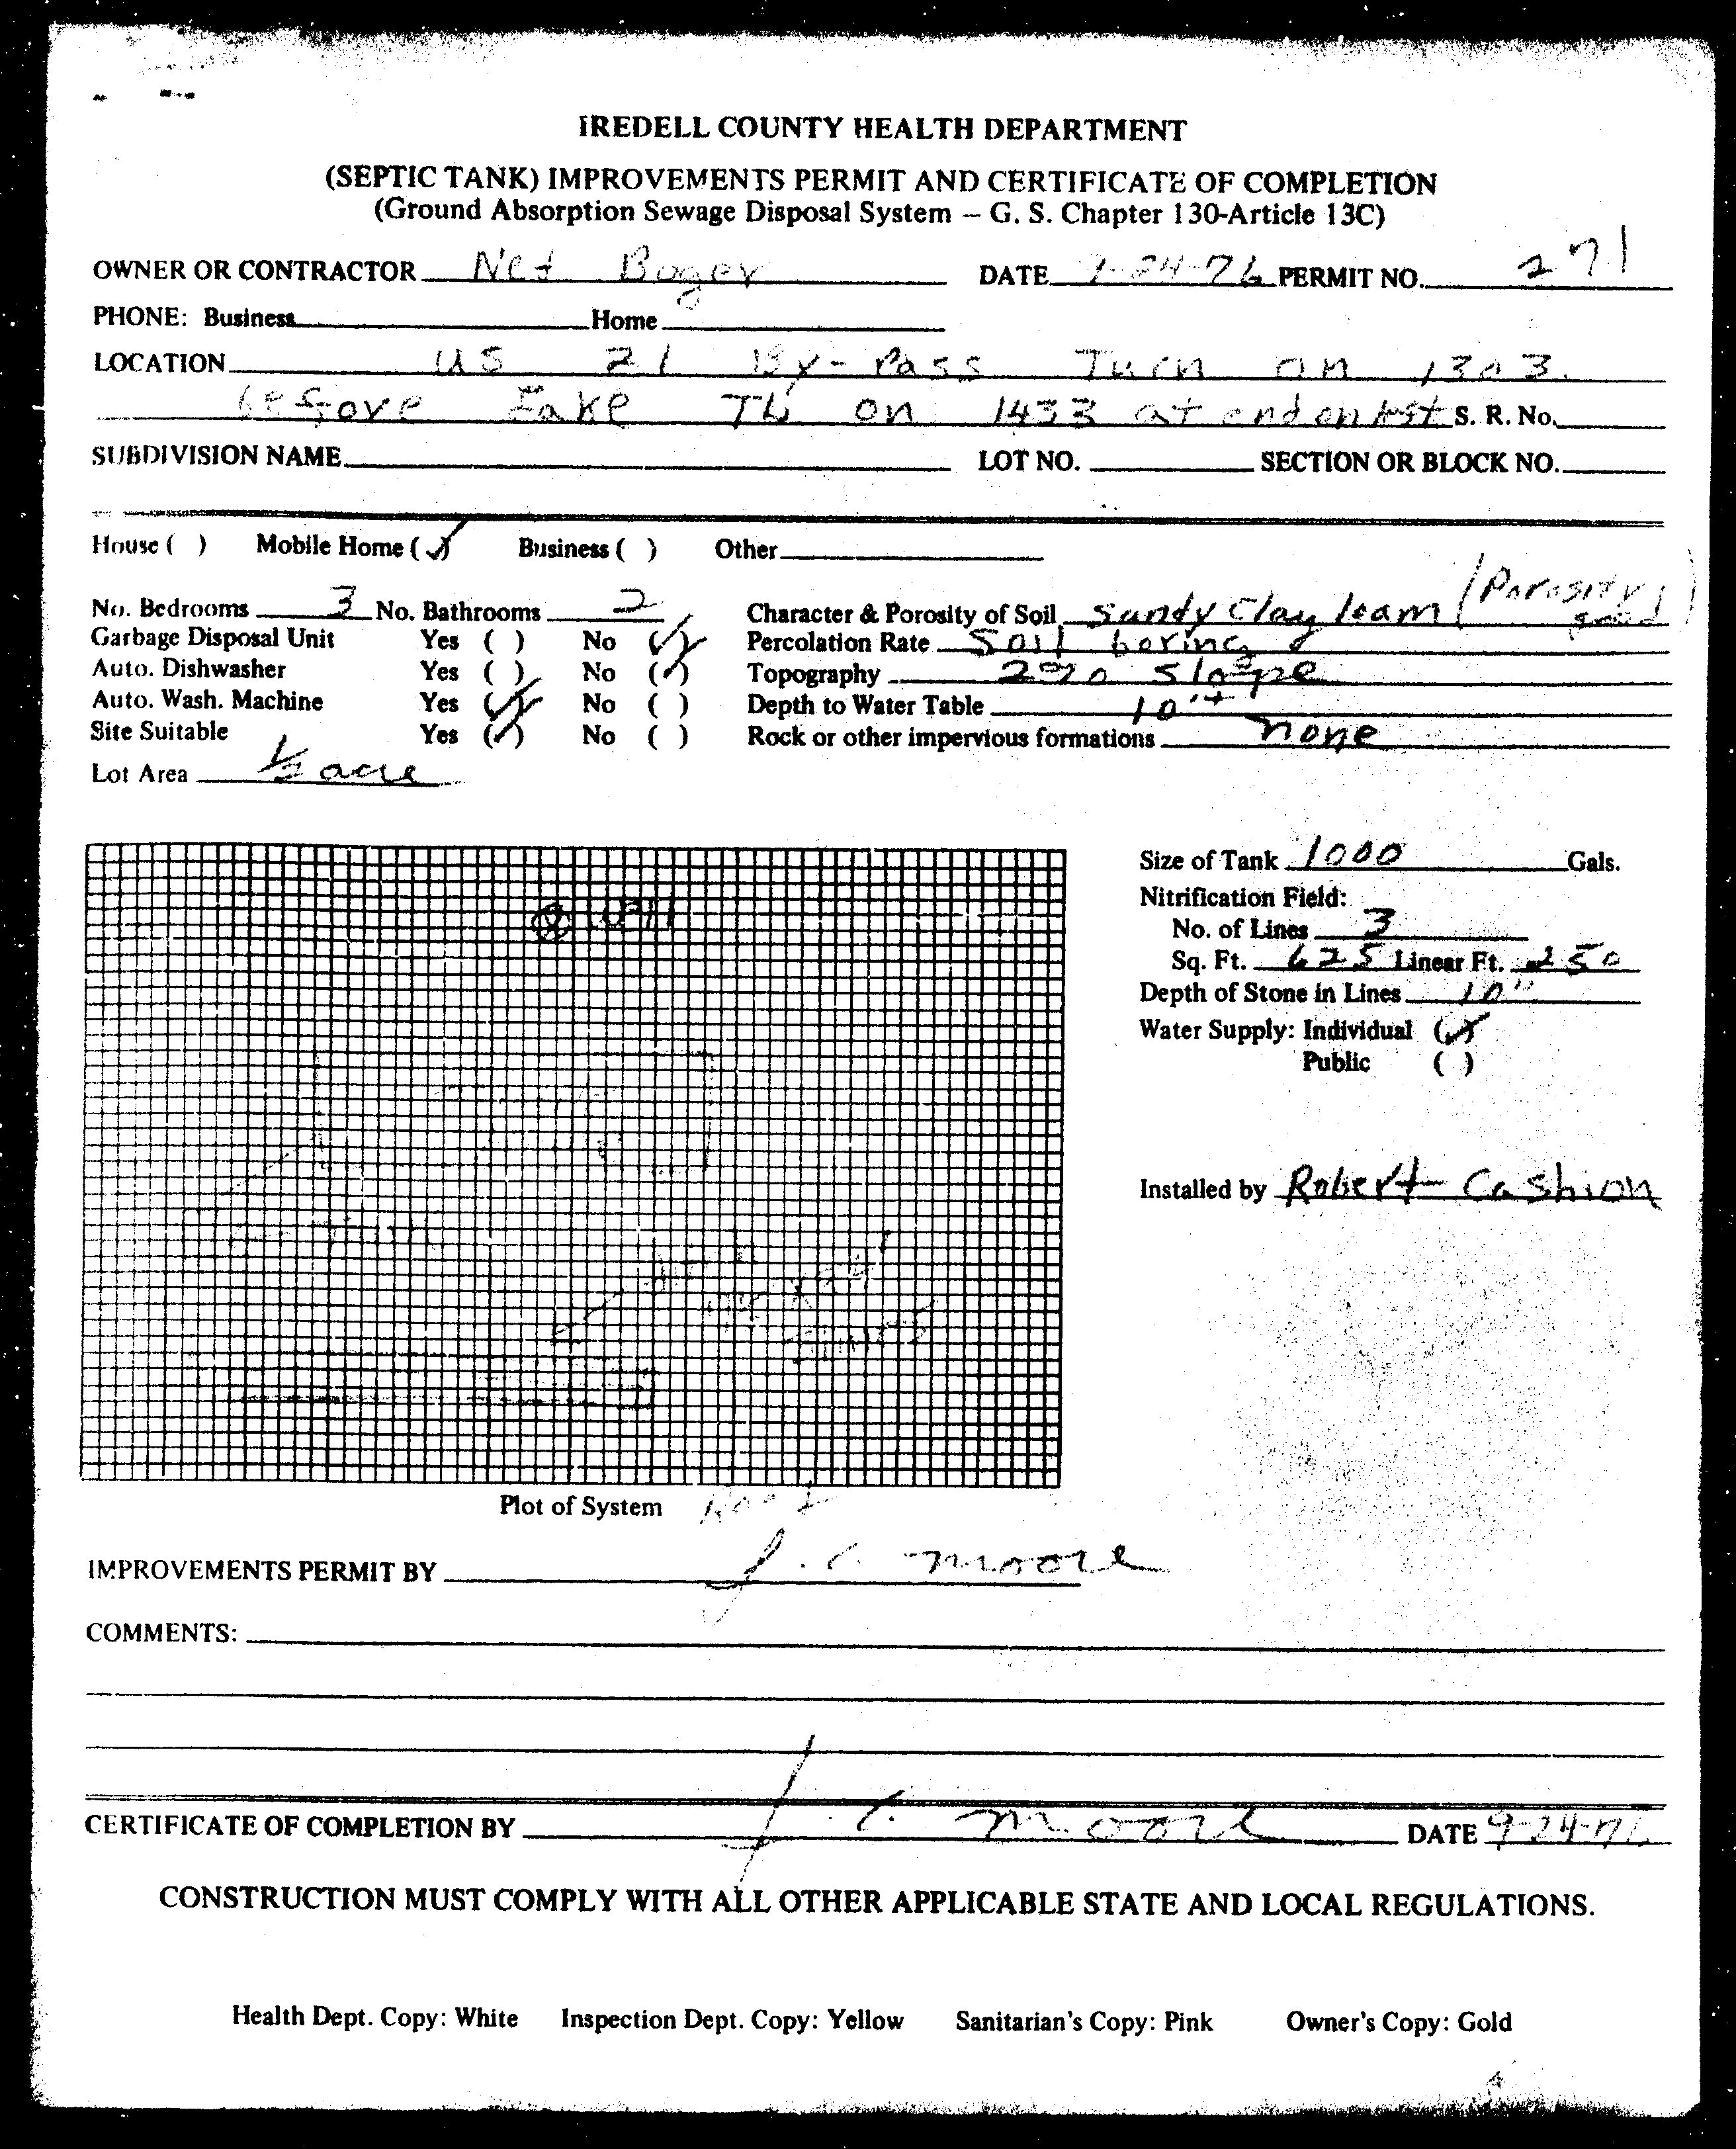 IREDELL COUNTY HEALTH DEPARTMENT
(SEPTIC TANK) IMPROVEMENTS PERMIT AND CERTIFICATE OF COMPLETION
(Ground Absorption Sewage Disposal System – G. S. Chapter 130-Article 13C)
OWNER OR CONTRACTOR Boger DATE -24-76 PERMIT NO. 271
PHONE: Business Home
LOCATION US 21 By-Pass Turn on 1303
before Lake TL on 1433 at end on S. R. No.
SUBDIVISION NAME LOT NO. SECTION OR BLOCK NO.
House ( ) Mobile Home (✓) Business ( ) Other
No. Bedrooms 3 No. Bathrooms 2 Character & Porosity of Soil Sandy Clay loam (Porosity good)
Garbage Disposal Unit Yes ( ) No (✓) Percolation Rate Soil boring
Auto. Dishwasher Yes ( ) No (✓) Topography 2% Slope
Auto. Wash. Machine Yes (✓) No ( ) Depth to Water Table 10'+
Site Suitable Yes (✓) No ( ) Rock or other impervious formations none
Lot Area ½ acre
Size of Tank 1000 Gals.
Nitrification Field:
No. of Lines 3
Sq. Ft. 625 Linear Ft. 250
Depth of Stone in Lines 10"
Water Supply: Individual (✓)
Public ( )
Installed by Robert Cashion
Well
Plot of System Road
IMPROVEMENTS PERMIT BY J. C. Moore
COMMENTS:
CERTIFICATE OF COMPLETION BY J. C. Moore DATE 9-24-76
CONSTRUCTION MUST COMPLY WITH ALL OTHER APPLICABLE STATE AND LOCAL REGULATIONS.
Health Dept. Copy: White Inspection Dept. Copy: Yellow Sanitarian's Copy: Pink Owner's Copy: Gold